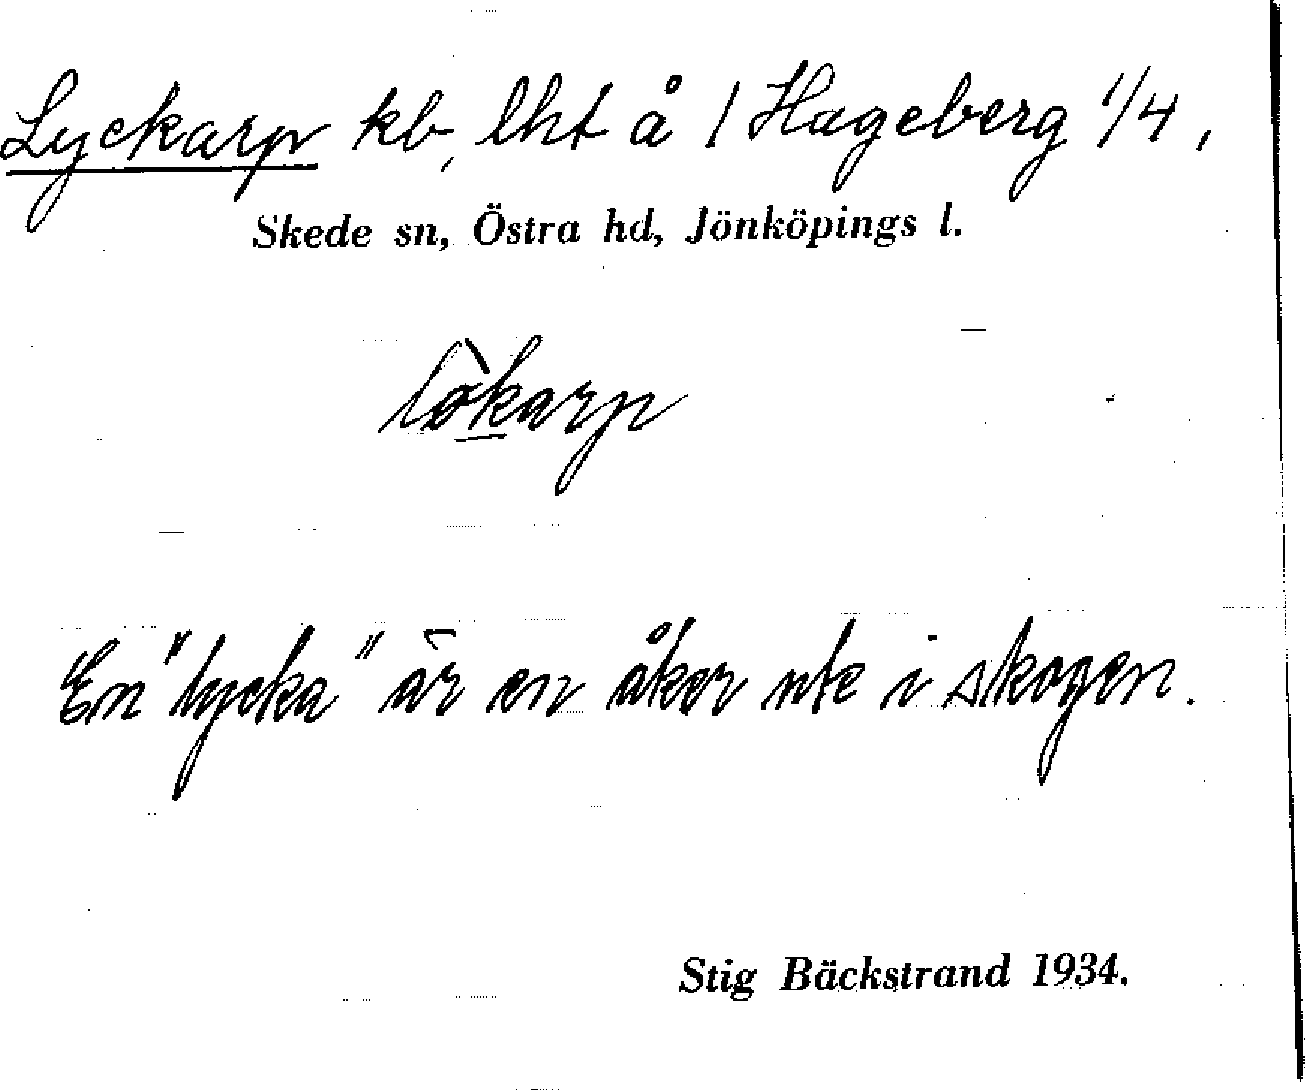 Lyckarp kb, lht å 1 Hageberg 1/4,
Skede sn, Östra hd, Jönköpings l.
lo̠karp
En "lycka" är en åker ute i skogen.
Stig Bäckstrand 1934.